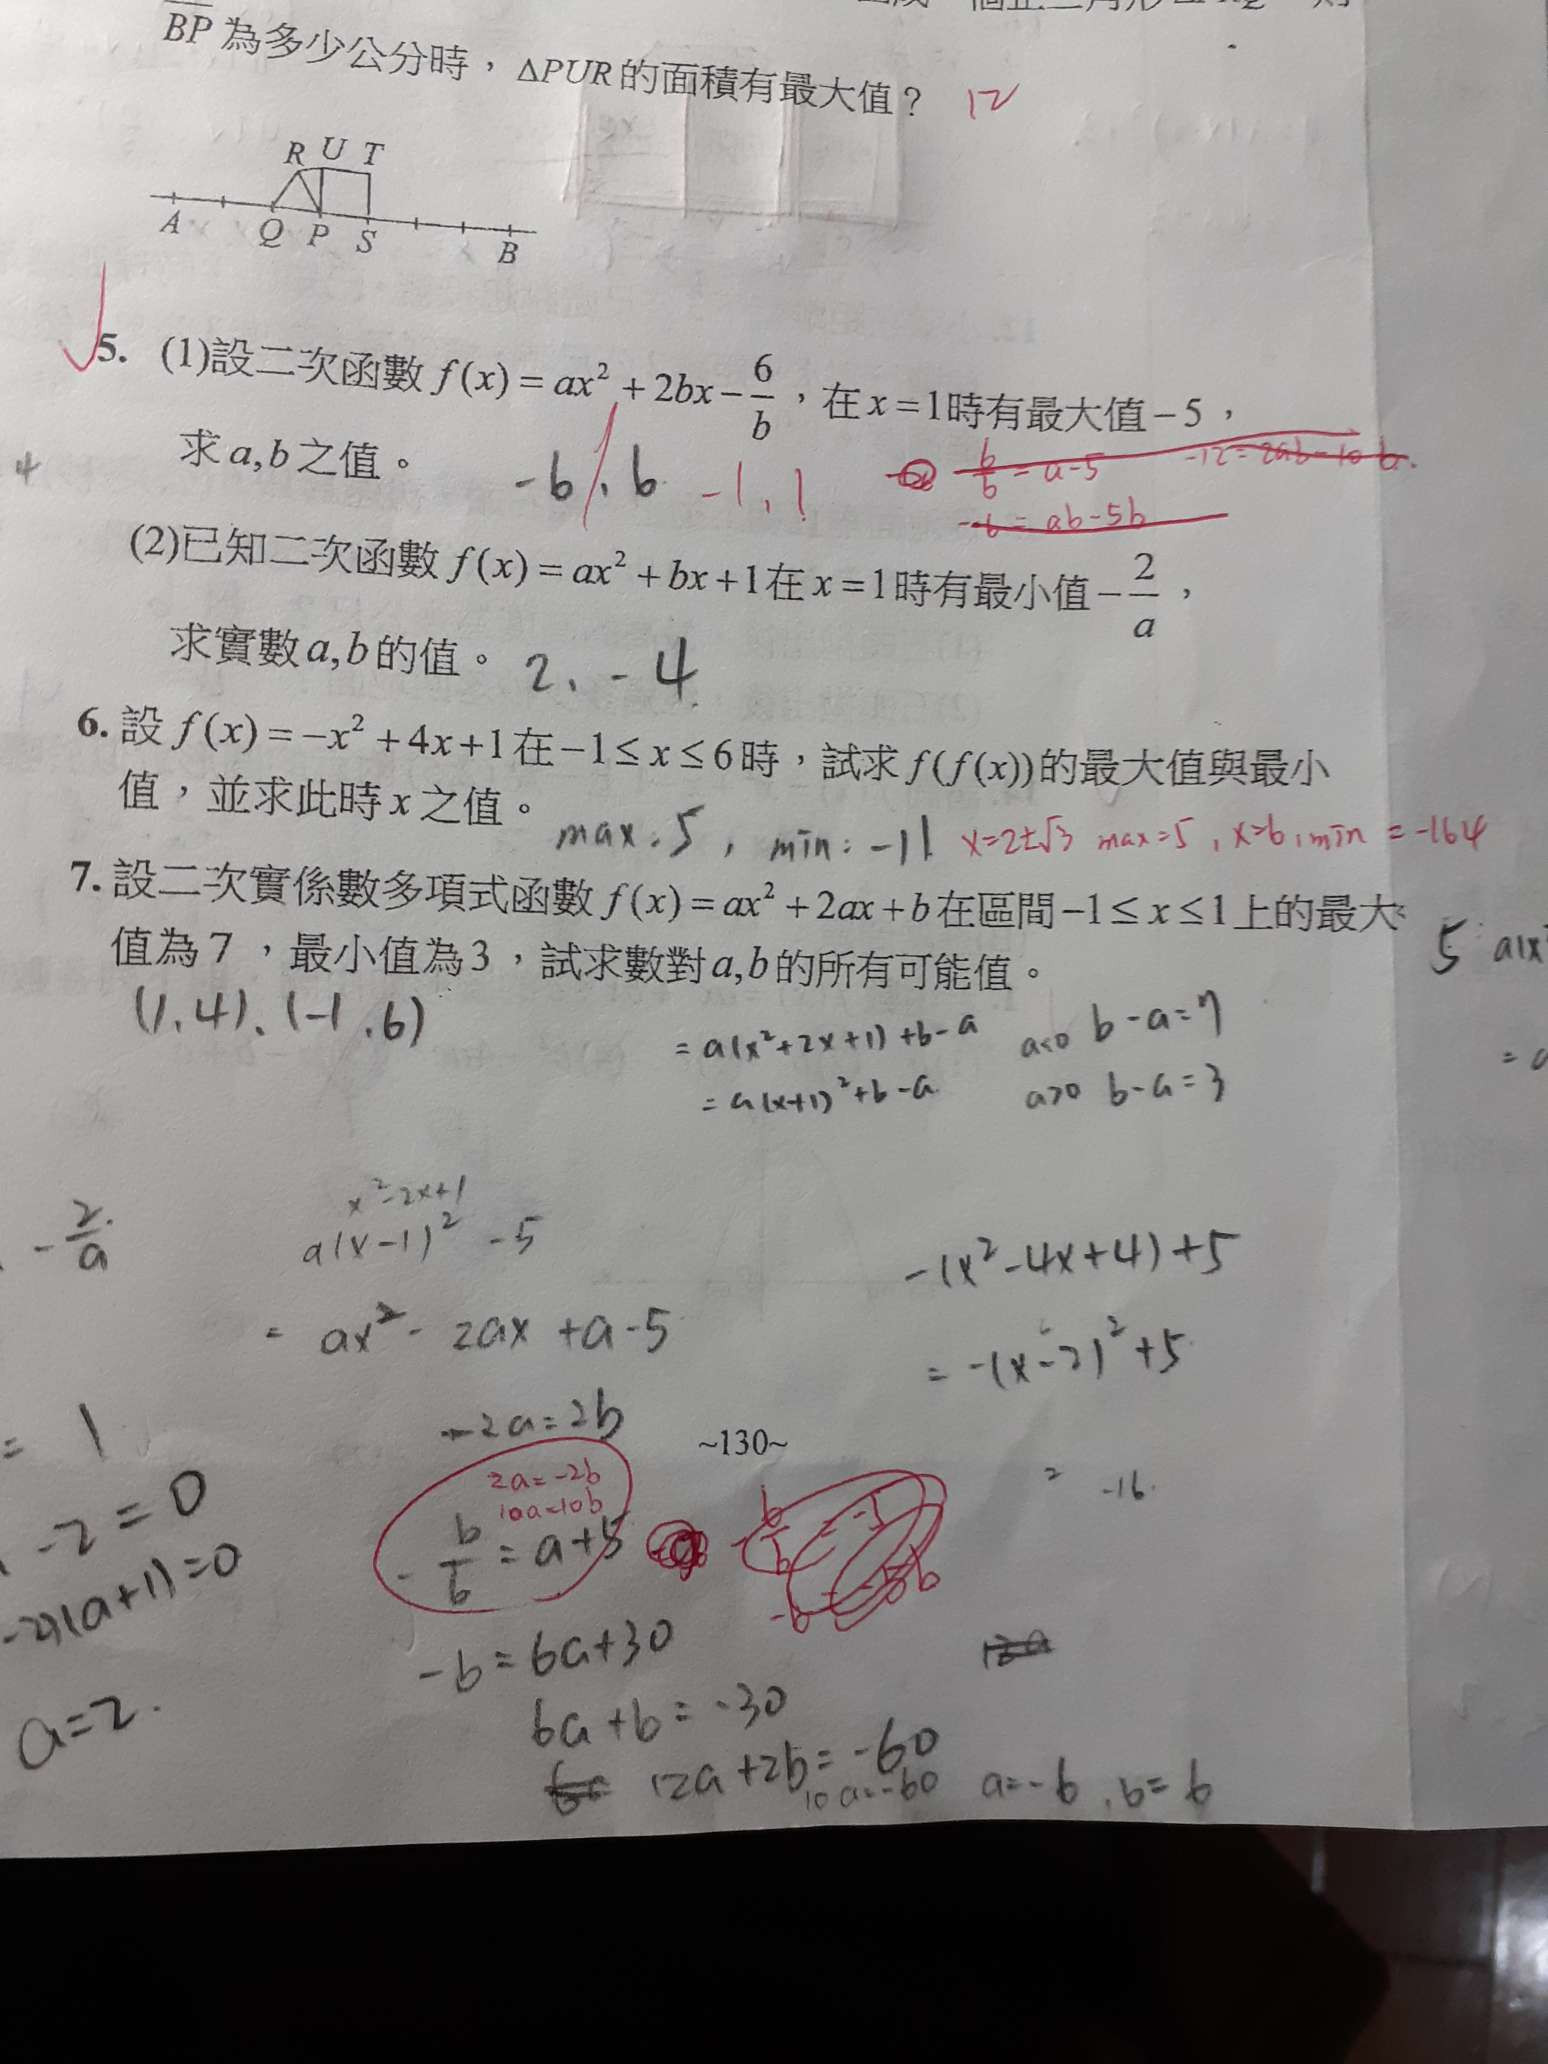 BP為多少公分時，ΔPUR的面積有最大值？ 12
R U T
A Q P S B
5. (1)設二次函數 f(x)=ax²+2bx-6/b，在x=1時有最大值-5，
求a,b之值。 -6, 6 -1, 1
6/b = a-5 -12=2ab-10b.
-6 = ab-5b
4
(2)已知二次函數 f(x)=ax²+bx+1在x=1時有最小值-2/a，
求實數a,b的值。 2, -4
6. 設 f(x)=-x²+4x+1在-1≤x≤6時，試求f(f(x))的最大值與最小
值，並求此時x之值。 max:5, min:-11 x=2±√3 max=5, x=6, min=-164
7. 設二次實係數多項式函數 f(x)=ax²+2ax+b在區間-1≤x≤1上的最大
值為7，最小值為3，試求數對a,b的所有可能值。
(1,4)、(-1,6)
=a(x²+2x+1)+b-a a<0 b-a=7
=a(x+1)²+b-a a>0 b-a=3
5
-2/a
x²-2x+1
a(x-1)²-5
= ax²-2ax+a-5
-2a=2b
2a=-2b
10a=10b
-b/6=a+5
-b=6a+30
6a+b=-30
12a+2b=-60
10a=-60 a=-6, b=6
-(x²-4x+4)+5
=-(x-2)²+5
= -16
~130~
= 1
-2=0
-2)(a+1)=0
a=2.